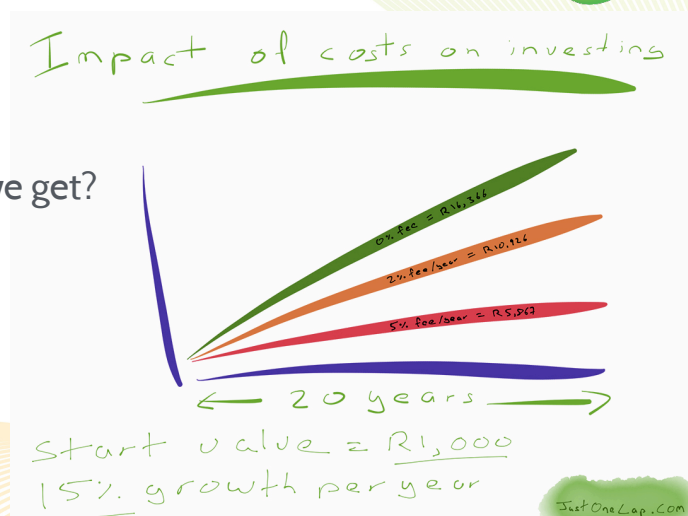 Impact of costs on investing
ve get?
0% fee = R16,366
2% fee/year = R10,926
5% fee/year = R5,867
20 years
Start value = R1,000
15% growth per year
JustOneLap.com